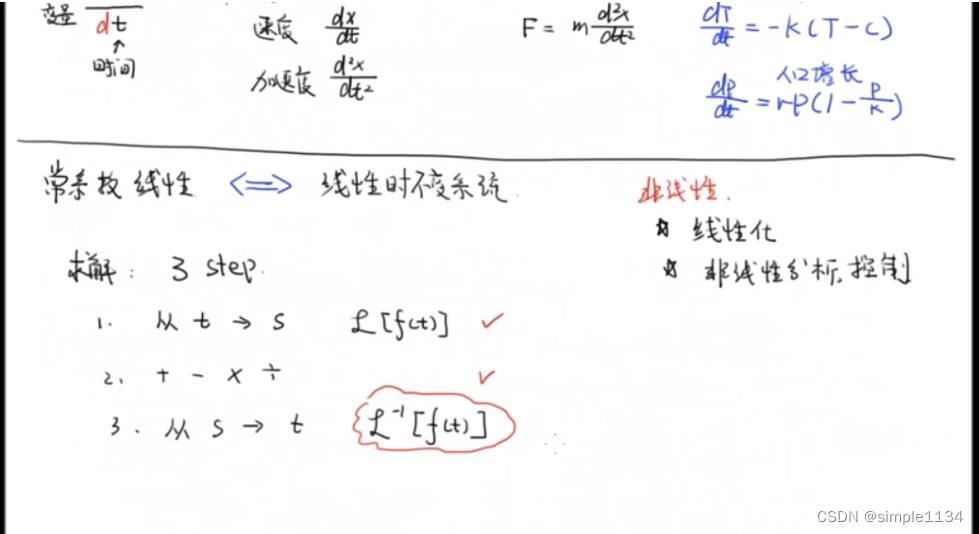 变量 dt
↑
时间
速度 dx/dt
加速度 d²x/dt²
F = m d²x/dt²
dT/dt = -K(T-C)
人口增长
dp/dt = rP(1-P/K)
常系数线性 <=> 线性时不变系统.
非线性.
☆ 线性化
☆ 非线性分析,控制
求解: 3 step.
1. 从 t → s ℒ[f(t)] ✓
2. + - × ÷ ✓
3. 从 s → t ℒ⁻¹[f(t)]
CSDN @simple1134